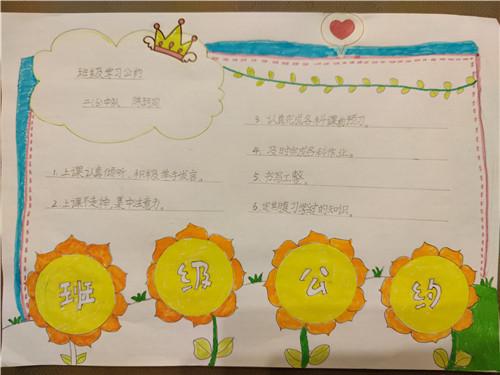 班级学习公约
1.上课认真倾听,积极举手发言。
2.上课不走神,集中注意力。
3.认真完成各科课前预习。
4.及时完成各科作业。
5.书写工整。
6.定期复习学过的知识。
班级公约